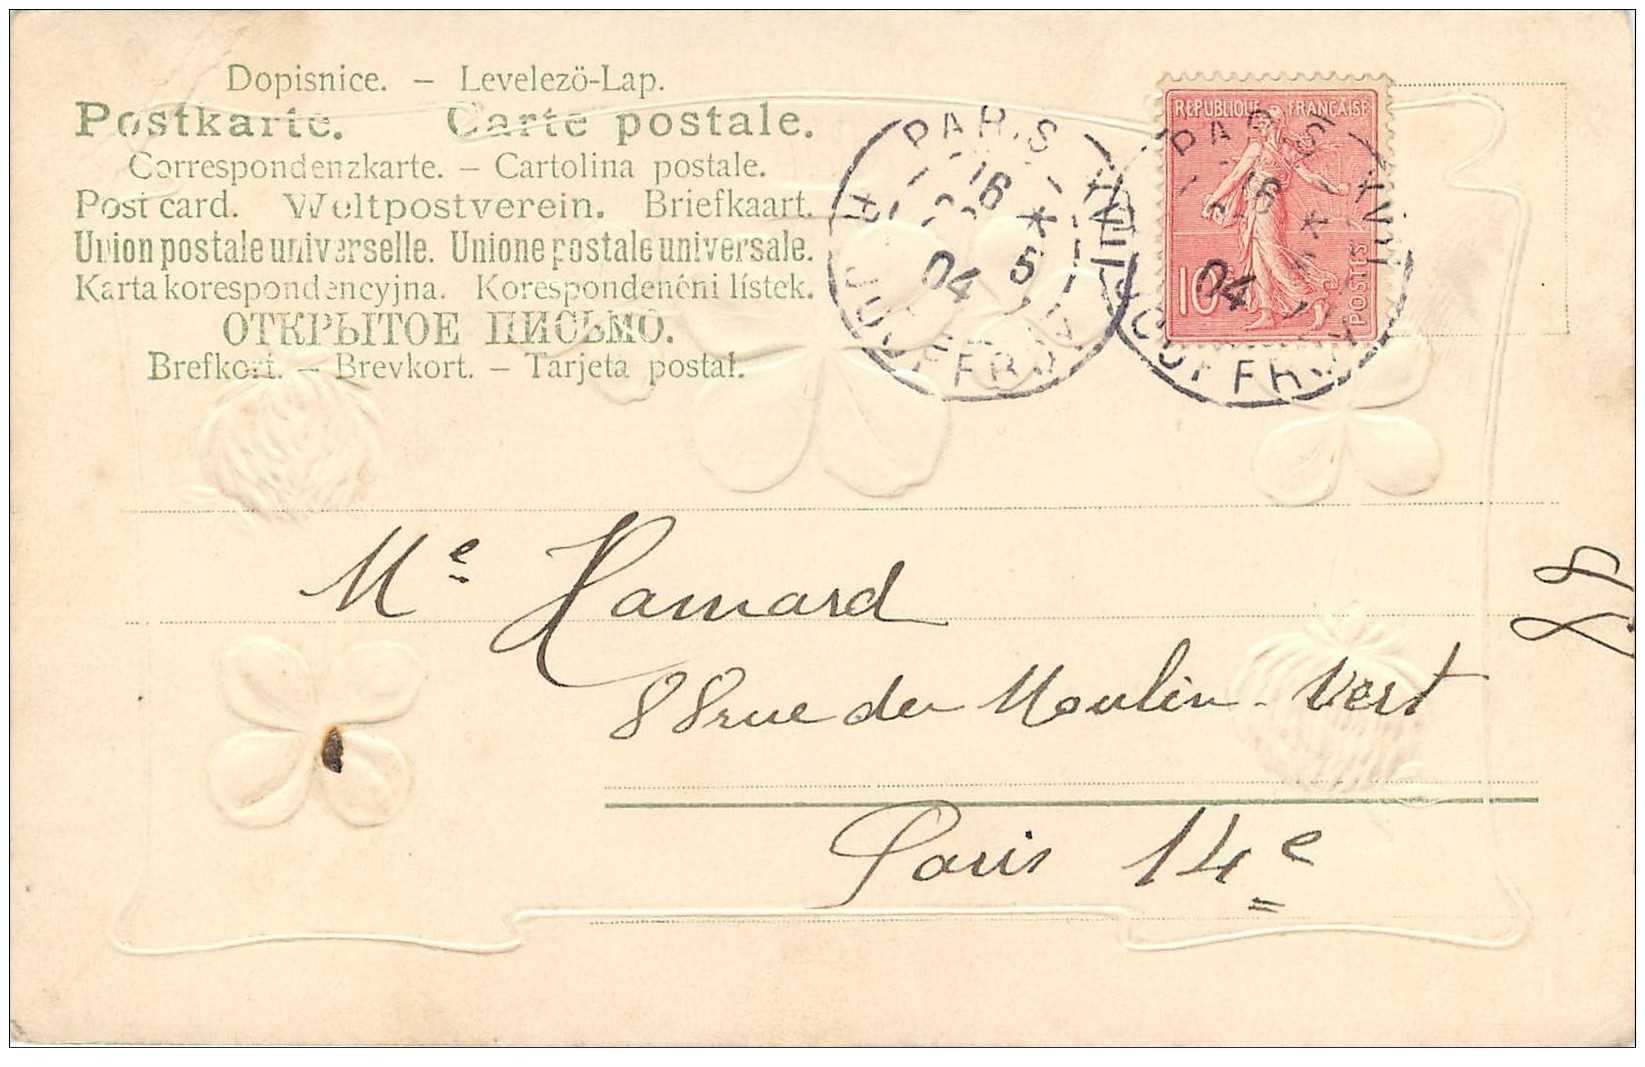 Dopisnice. – Levelezö-Lap.
Postkarte. Carte postale.
Correspondenzkarte. – Cartolina postale.
Post card. Weltpostverein. Briefkaart.
Union postale universelle. Unione postale universale.
Karta korespondencyjna. Korespondenční lístek.
ОТКРЫТОЕ ПИСЬМО.
Brefkort. – Brevkort. – Tarjeta postal.
PARIS
16
* 5
04
REPUBLIQUE FRANÇAISE
10
POSTES
PARIS
16
*
04
Me Hamard
88
88 rue du Moulin-Vert
Paris 14e